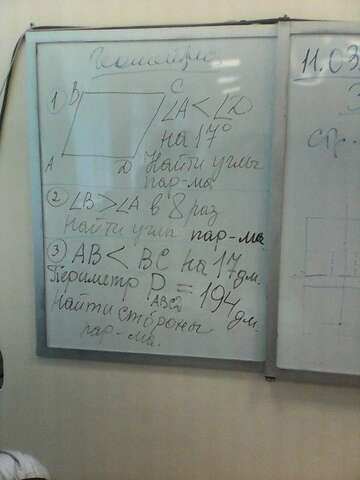 Геометрия
11.03
1) B C
∠A < ∠D
на 17°
A D Найти углы
пар-ма
2) ∠B > ∠A в 8 раз
Найти углы пар-ма
3) AB < BC на 17 дм.
Периметр P ABCD = 194 дм.
Найти стороны
пар-ма.
стр.